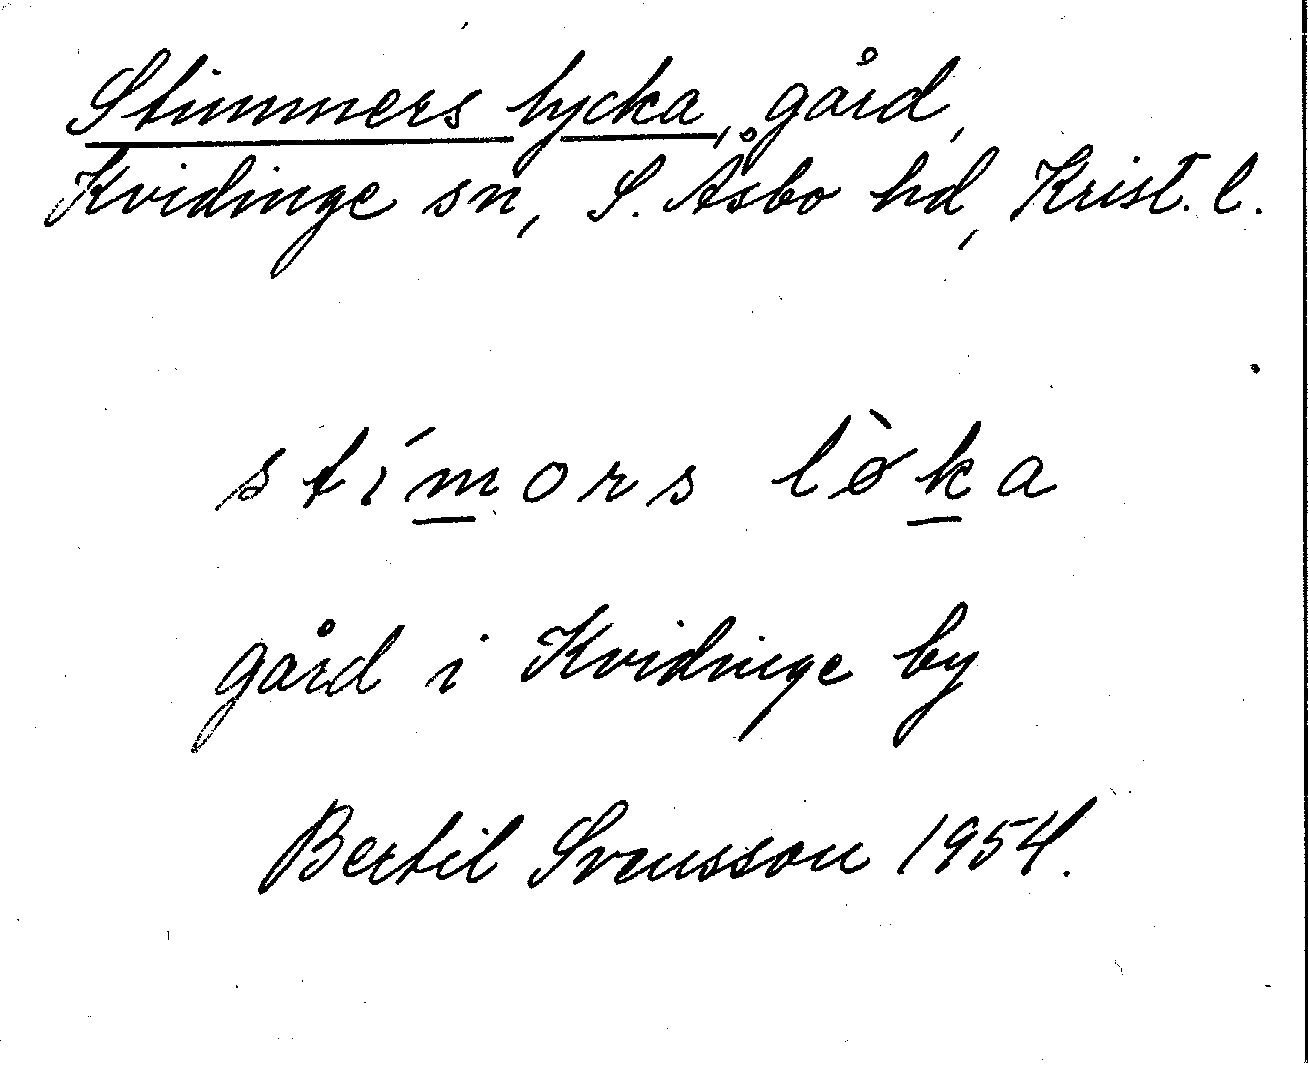 Stimmers lycka, gård,
Kvidinge sn, S. Åsbo hd, Krist. l.
stímors lø̀ka
gård i Kvidinge by
Bertil Svensson 1954.